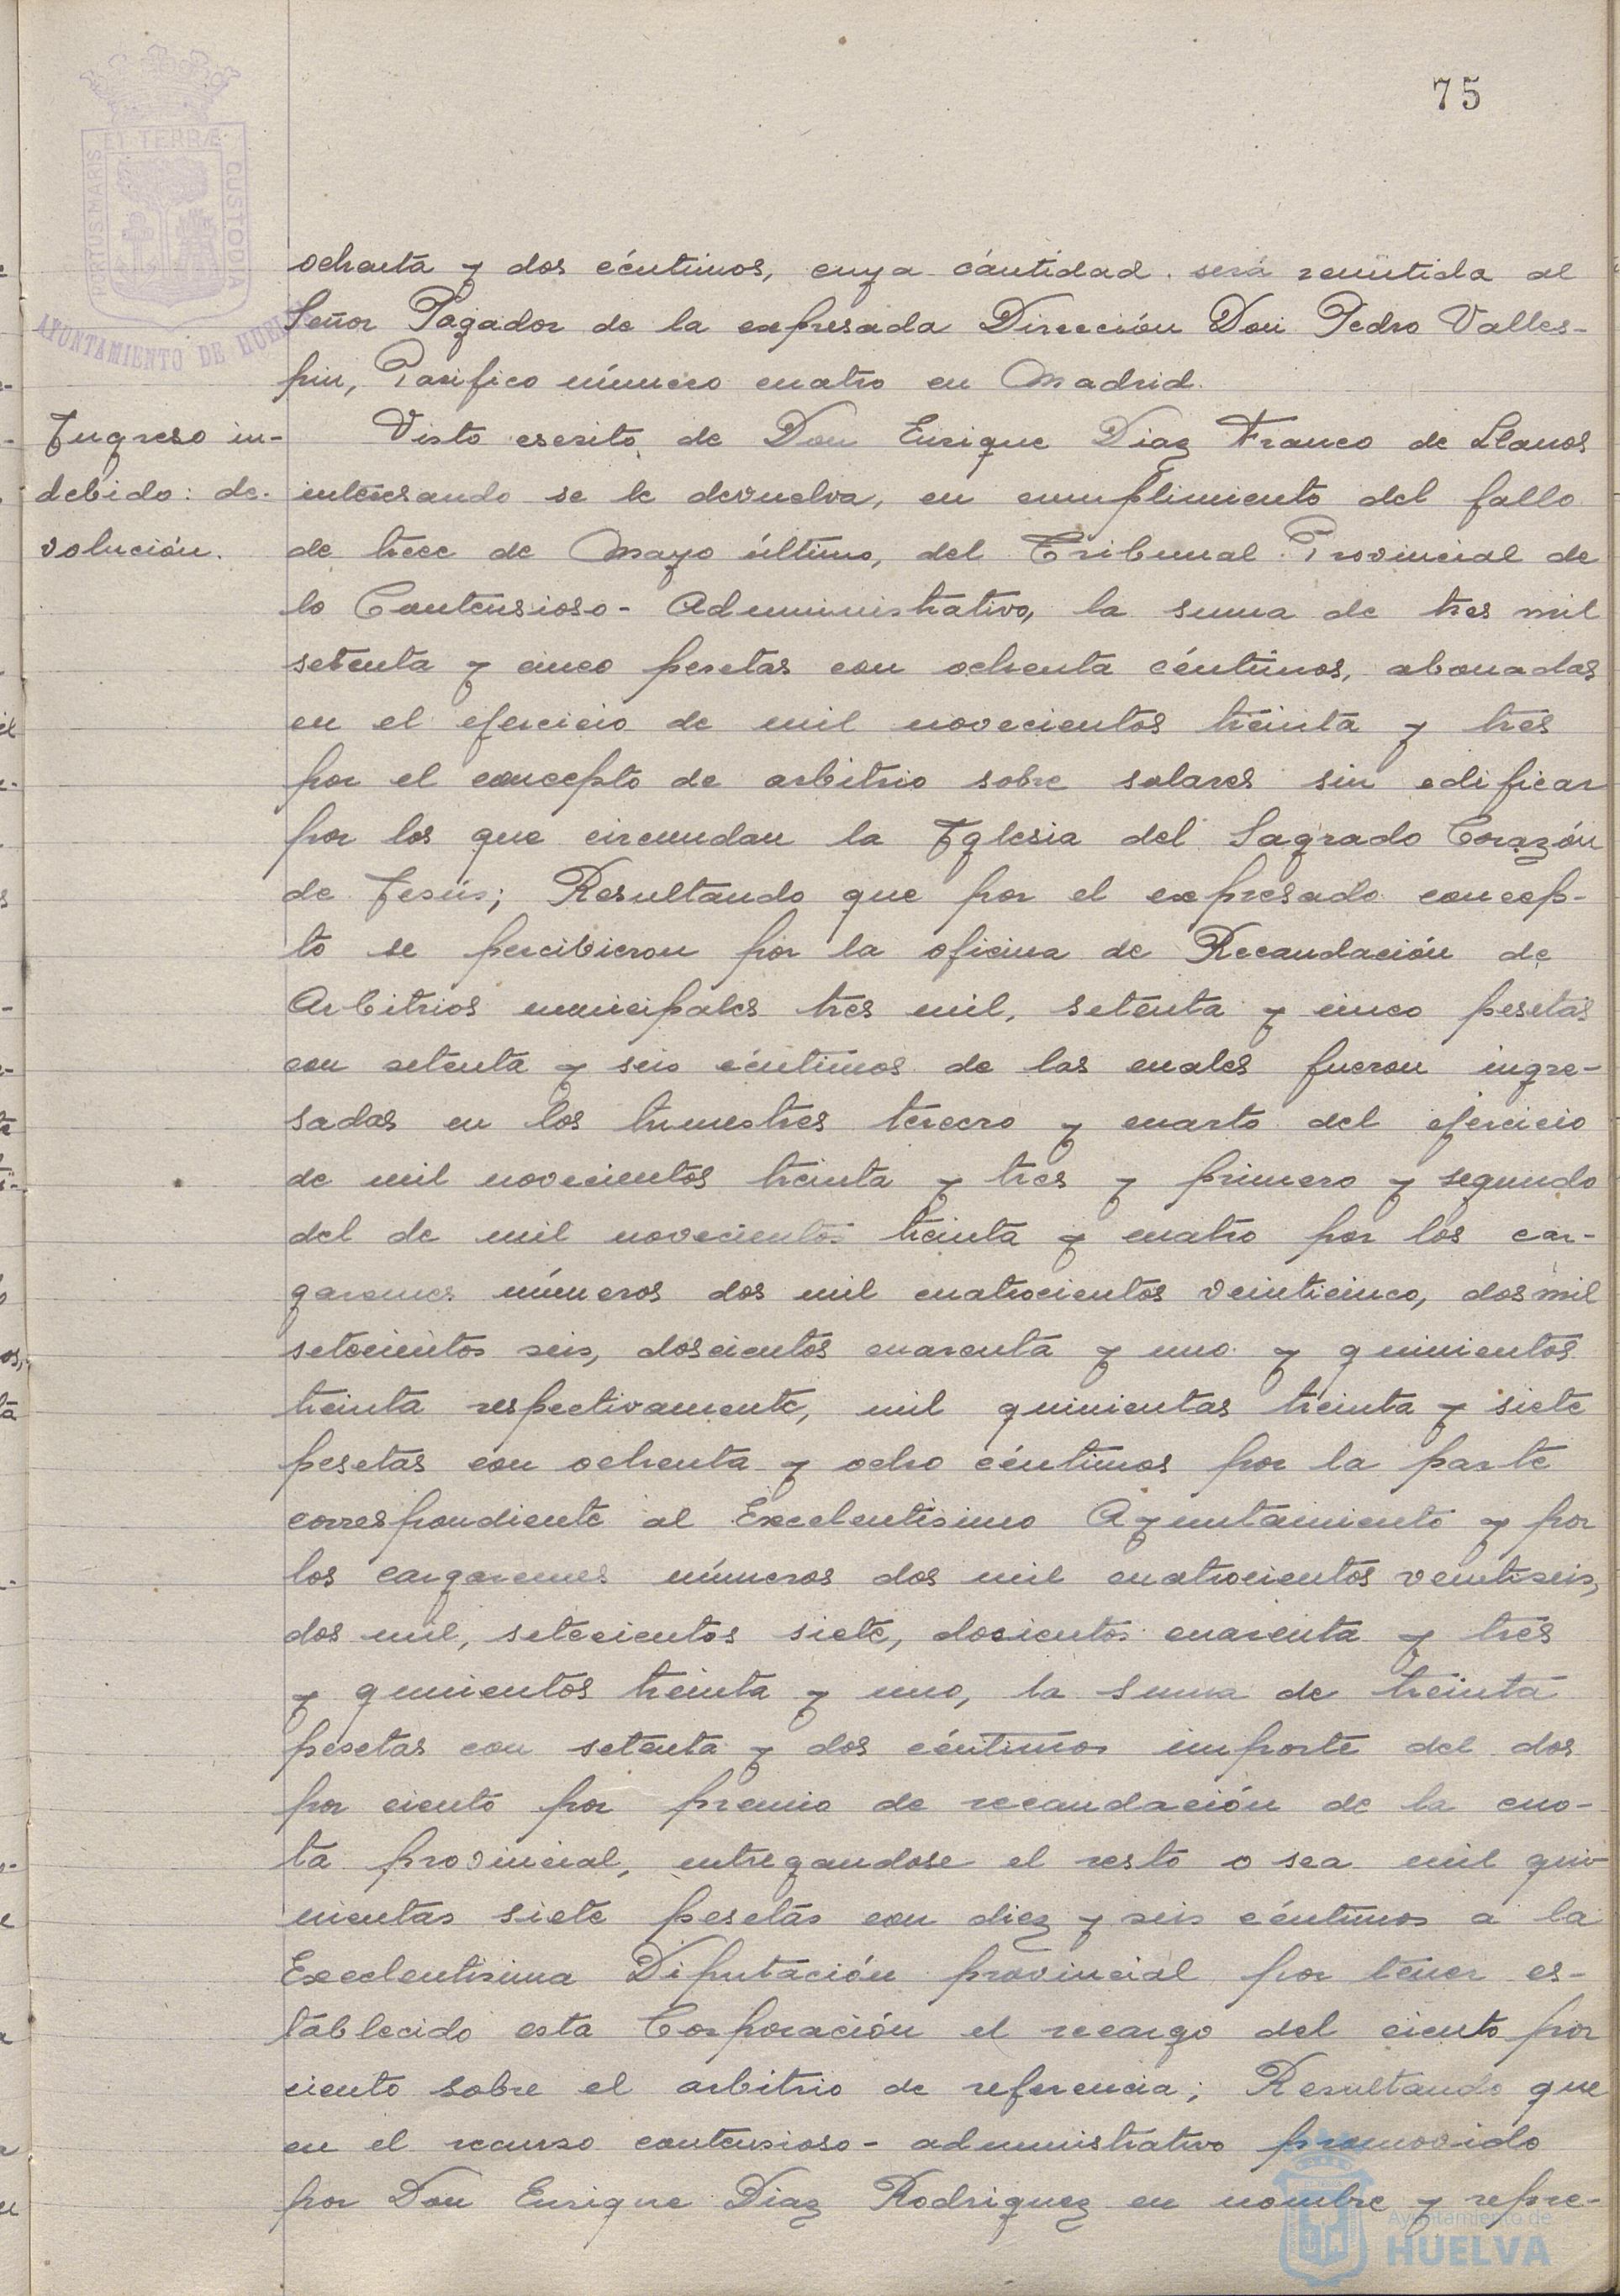 75
PORTUS MARIS ET TERRÆ CUSTODIA
AYUNTAMIENTO DE HUELVA
ochenta y dos céntimos, cuya cantidad será remitida al
Señor Pagador de la expresada Dirección Don Pedro Valles-
pin, Pacífico número cuatro en Madrid.
Ingreso in-
debido: de-
volución.
Visto escrito de Don Enrique Diaz Franco de Llanos
interesando se le devuelva, en cumplimiento del fallo
de trece de Mayo último, del Tribunal Provincial de
lo Contensioso-Administrativo, la suma de tres mil
setenta y cinco pesetas con ochenta céntimos, abonadas
en el ejercicio de mil novecientos treinta y tres
por el concepto de arbitrio sobre solares sin edificar
por los que circundan la Iglesia del Sagrado Corazón
de Jesús; Resultando que por el expresado concep-
to se percibieron por la oficina de Recaudación de
Arbitrios municipales tres mil, setenta y cinco pesetas
con setenta y seis céntimos de las cuales fueron ingre-
sadas en los trimestres tercero y cuarto del ejercicio
de mil novecientos treinta y tres y primero y segundo
del de mil novecientos treinta y cuatro por los car-
garemes números dos mil cuatrocientos veinticinco, dos mil
setecientos seis, doscientos cuarenta y uno y quinientos
treinta respectivamente, mil quinientas treinta y siete
pesetas con ochenta y ocho céntimos por la parte
correspondiente al Excelentísimo Ayuntamiento y por
los cargaremes números dos mil cuatrocientos ventiseis,
dos mil, setecientos siete, docientos cuarenta y tres
y quinientos treinta y uno, la suma de treinta
pesetas con setenta y dos céntimos importe del dos
por ciento por premio de recaudación de la cuo-
ta provincial, entregandose el resto o sea mil qui-
nientas siete pesetas con diez y seis céntimos a la
Excelentisima Diputación provincial por tener es-
tablecido esta Corporación el recargo del ciento por
ciento sobre el arbitrio de referencia; Resultando que
en el recurso contensioso-administrativo promovido
por Don Enrique Diaz Rodriguez en nombre y repre-
Ayuntamiento de
HUELVA